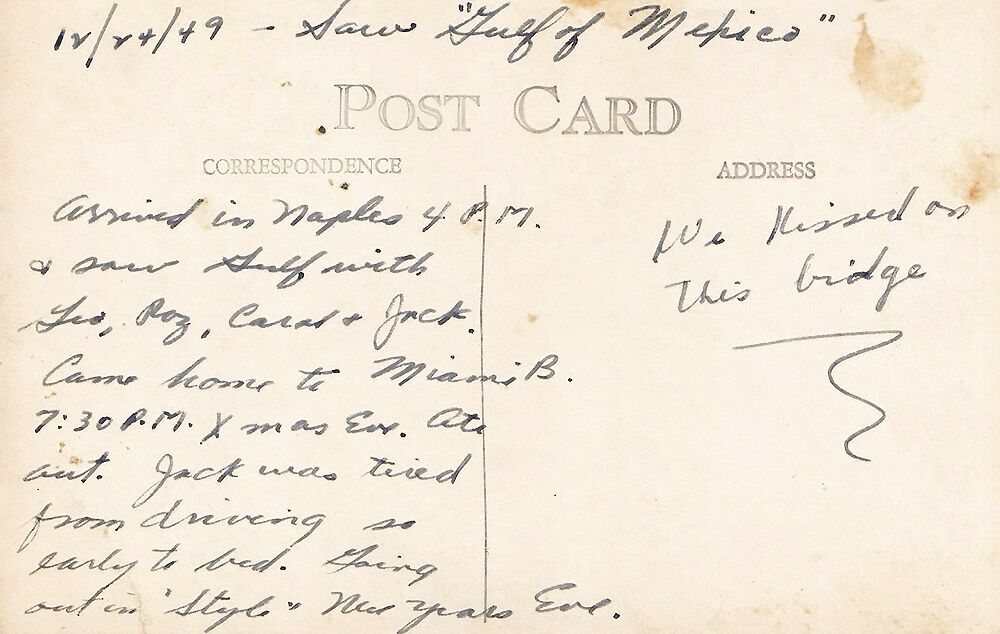 12/24/49 - Saw "Gulf of Mexico"
POST CARD
CORRESPONDENCE
ADDRESS
Arrived in Naples 4 P.M.
& saw Gulf with
Leo, Roz, Carol & Jack.
Came home to Miami B.
7:30 P.M. Xmas Eve. Ate
out. Jack was tired
from driving so
early to bed. Going
out in "Style" New Years Eve.
We Kissed on
This bridge